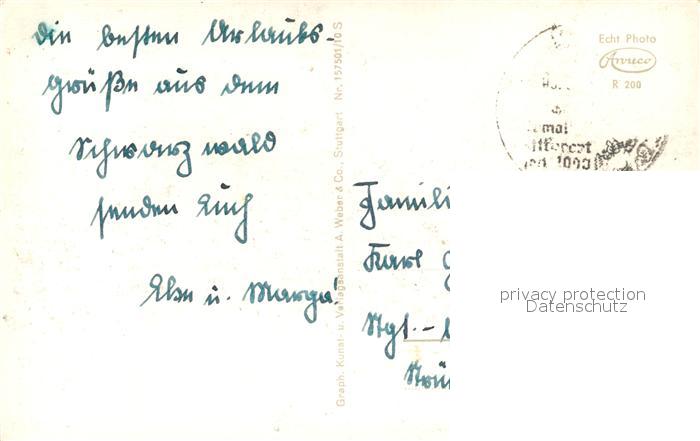 die besten Urlaubs-
grüße aus dem
Schwarzwald
senden Euch
u. Marga!
Graph. Kunst- u. Verlagsanstalt A. Weber & Co., Stuttgart Nr. 157501/10 S
Echt Photo
Aweco
R 200
Famili
Karl
Stgt.-
privacy protection
Datenschutz